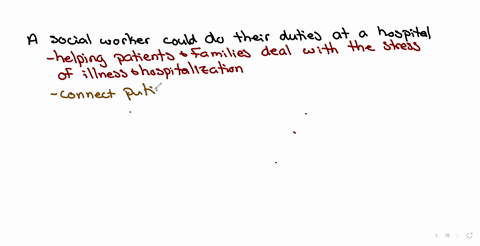 A social worker could do their duties at a hospital
-helping patients & families deal with the stress
of illness & hospitalization
-connect puti